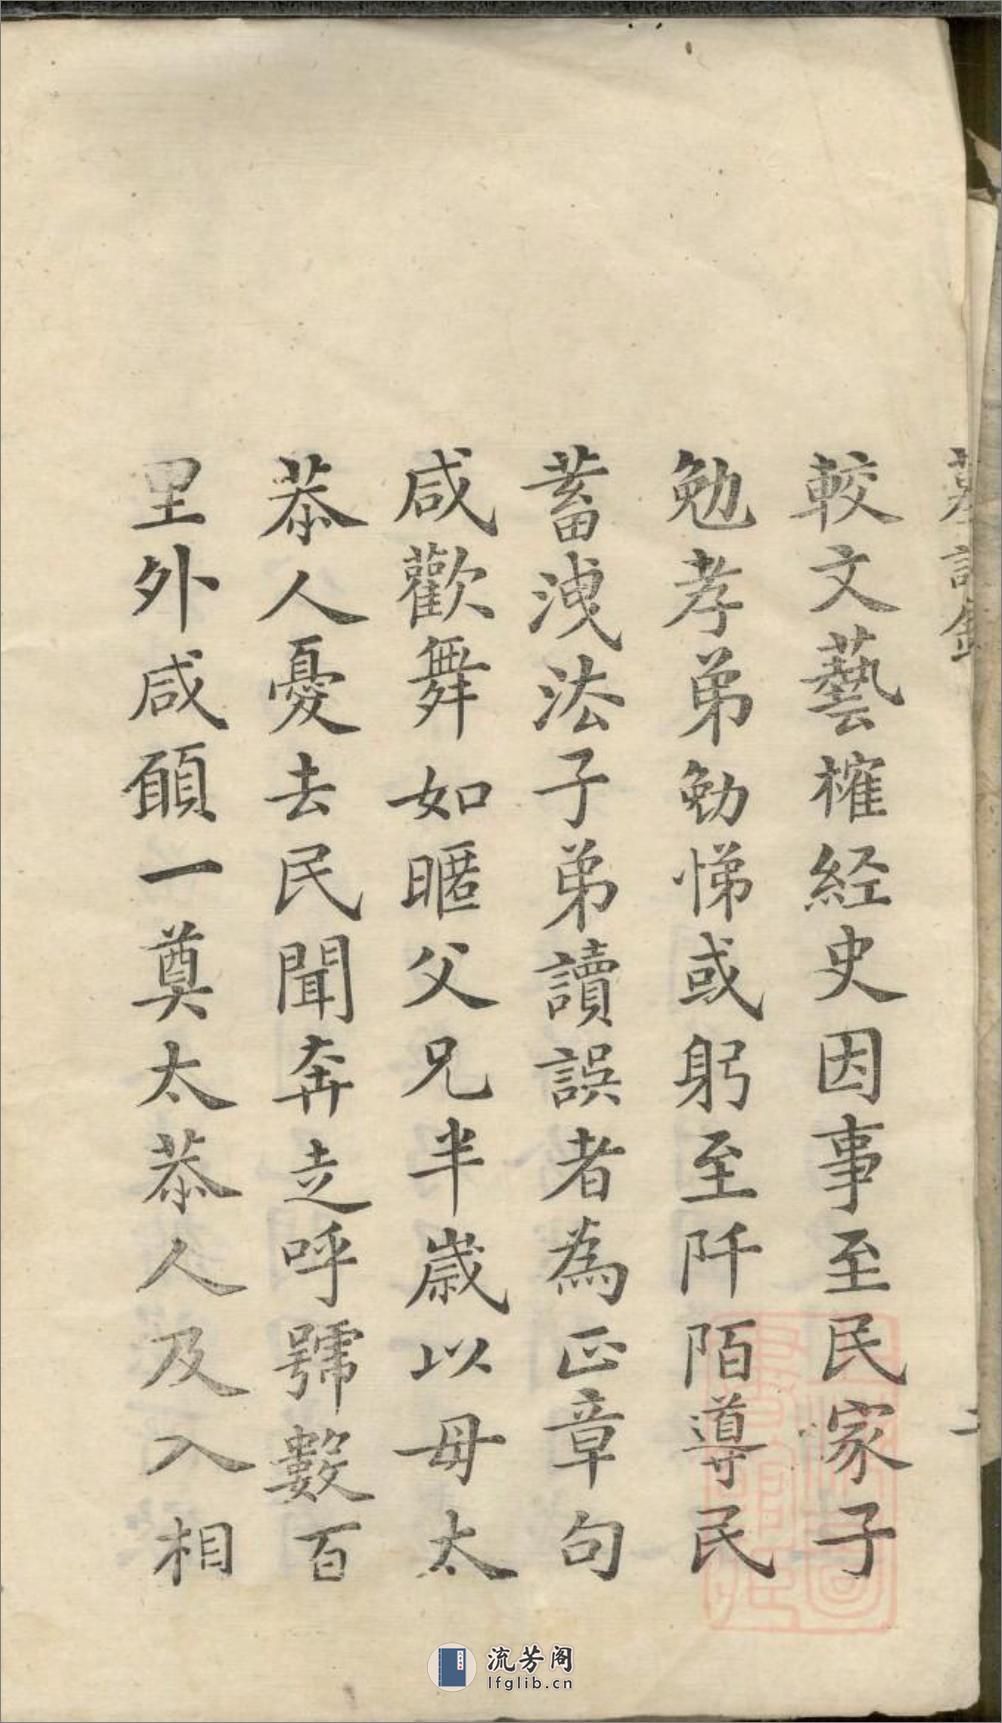 墓誌銘
二
較文藝榷經史因事至民家子
勉孝弟勉悌或躬至阡陌導民
蓄洩法子弟讀誤者為正章句
咸歡舞如暱父兄半嵗以母太
恭人憂去民聞奔走呼號數百
里外咸願一奠太恭人及入相
流芳阁
lfglib.cn